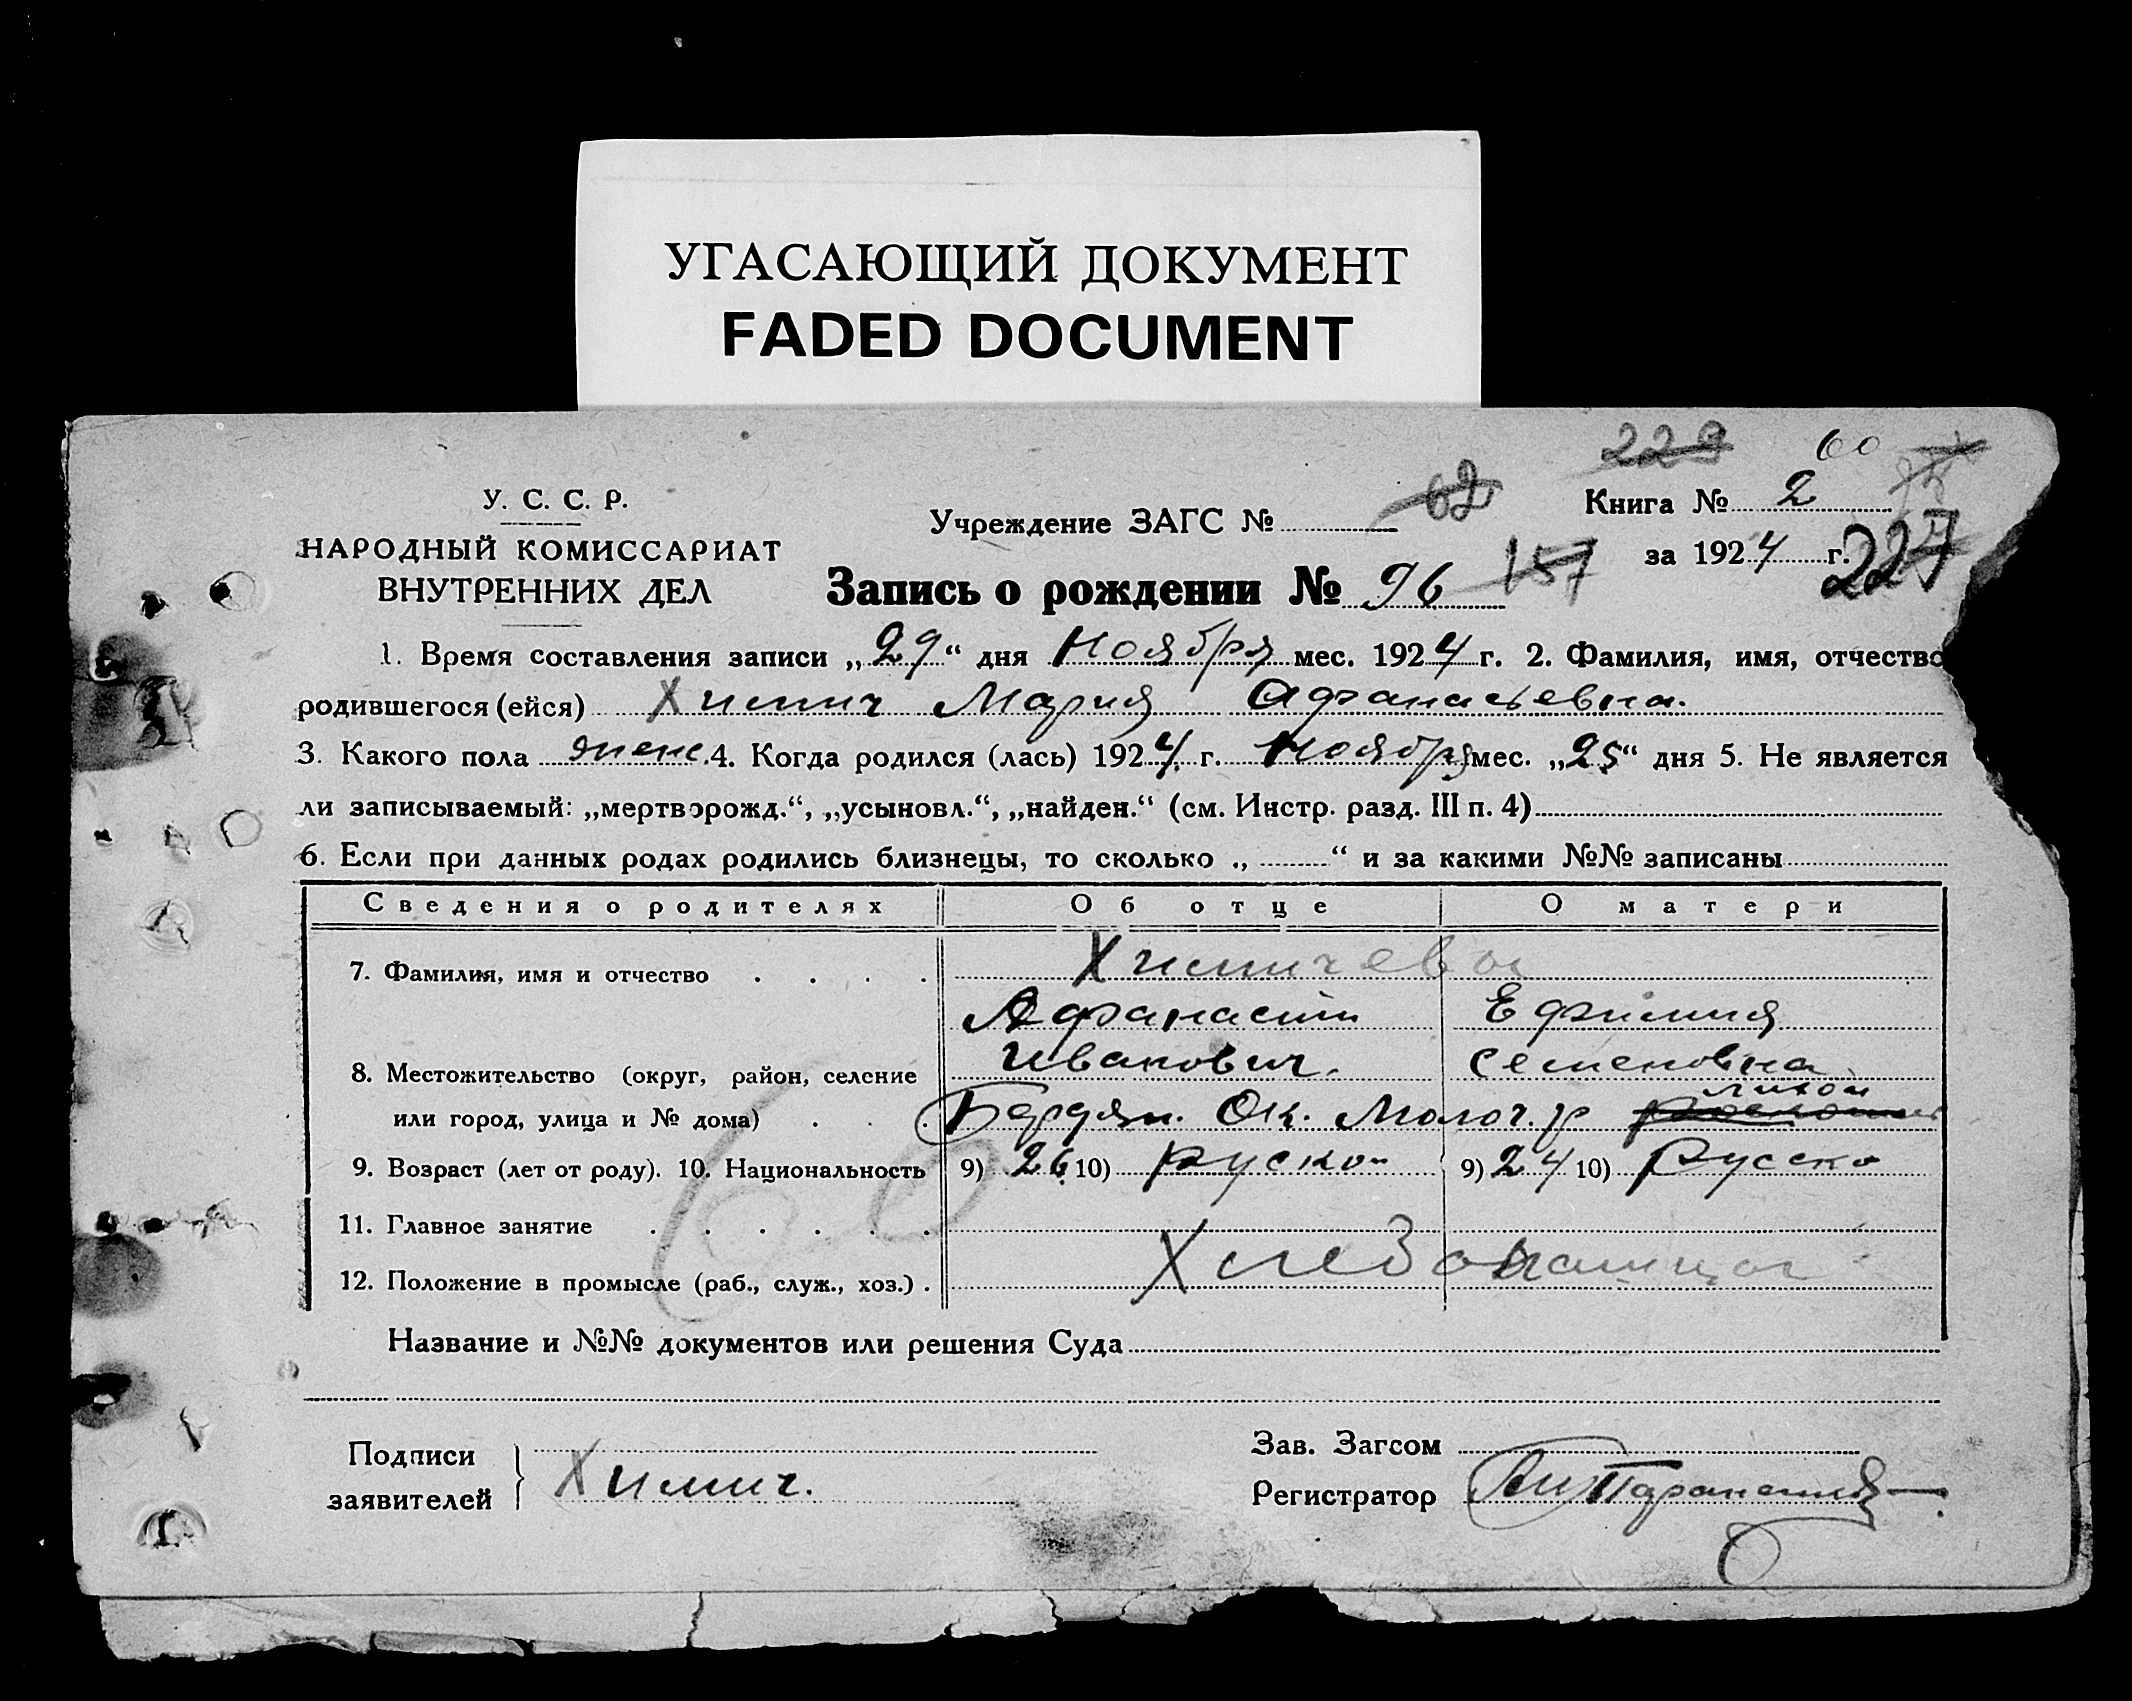 УГАСАЮЩИЙ ДОКУМЕНТ
FADED DOCUMENT
229 60
У. С. С. Р.
НАРОДНЫЙ КОМИССАРИАТ
ВНУТРЕННИХ ДЕЛ
Учреждение ЗАГС № 62
Книга № 2
за 1924 г. 227
Запись о рождении № 96 157
1. Время составления записи „29“ дня Ноября мес. 1924 г. 2. Фамилия, имя, отчество
родившегося (ейся) Химич Мария Афанасьевна.
3. Какого пола женс. 4. Когда родился (лась) 1924 г. Ноября мес. „25“ дня 5. Не является
ли записываемый: „мертворожд.“, „усыновл.“, „найден.“ (см. Инстр. разд. III п. 4)
6. Если при данных родах родились близнецы, то сколько „ “ и за какими №№ записаны
Сведения о родителях Об отце О матери
7. Фамилия, имя и отчество Химичева
Афанасий Ефимия
Иванович. Семеновна
8. Местожительство (округ, район, селение
или город, улица и № дома) Бердян. Ок. Молоч. р
9. Возраст (лет от роду). 10. Национальность 9) 26 10) Руской 9) 24 10) Русско
11. Главное занятие
12. Положение в промысле (раб., служ., хоз.)
60
Название и №№ документов или решения Суда
Подписи
заявителей Химич.
Зав. Загсом
Регистратор